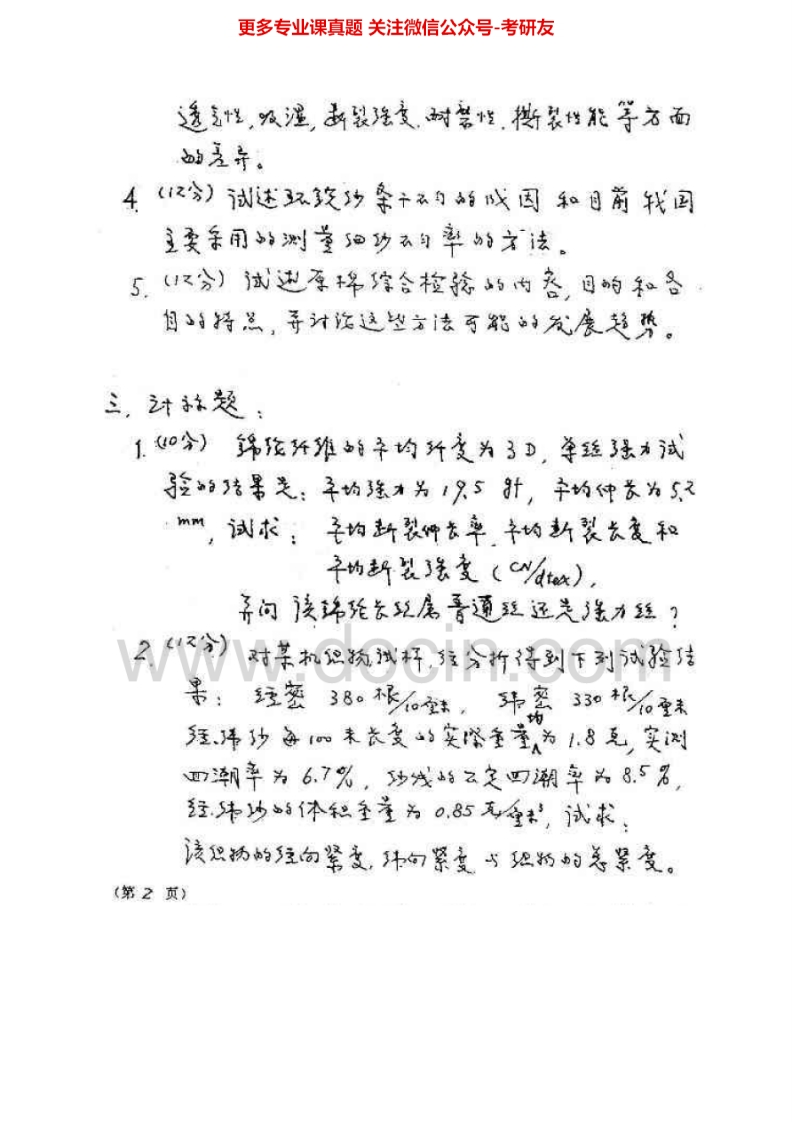 更多专业课真题 关注微信公众号-考研友
透气性,吸湿,断裂强度,耐磨性,撕裂性能等方面
的差异。
4.(12分)试述环锭纱条干不匀的成因和目前我国
主要采用的测量细纱不匀率的方法。
5.(12分)试述原棉综合检验的内容,目的和各
目的特点,并讨论这些方法可能的发展趋势。
三、计标题:
1.(10分) 锦纶纤维的平均纤度为3D,单丝强力试
验的结果是:平均强力为19.5 gf,平均伸长为5.2
mm,试求:平均断裂伸长率,平均断裂长度和
平均断裂强度(CN/dtex),
并问该锦纶长丝属普通丝还是强力丝?
www.docin.com
2.(12分) 对某机织物试样,经分析得到下列试验结
果:经密 380根/10厘米,纬密 330根/10厘米
经.纬纱每100米长度的实际重量均为1.8克,实测
回潮率为6.7%,纱线的公定回潮率为8.5%,
经.纬纱的体积重量为0.85克/厘米³,试求:
该织物的经向紧度,纬向紧度与织物的总紧度。
(第 2 页)